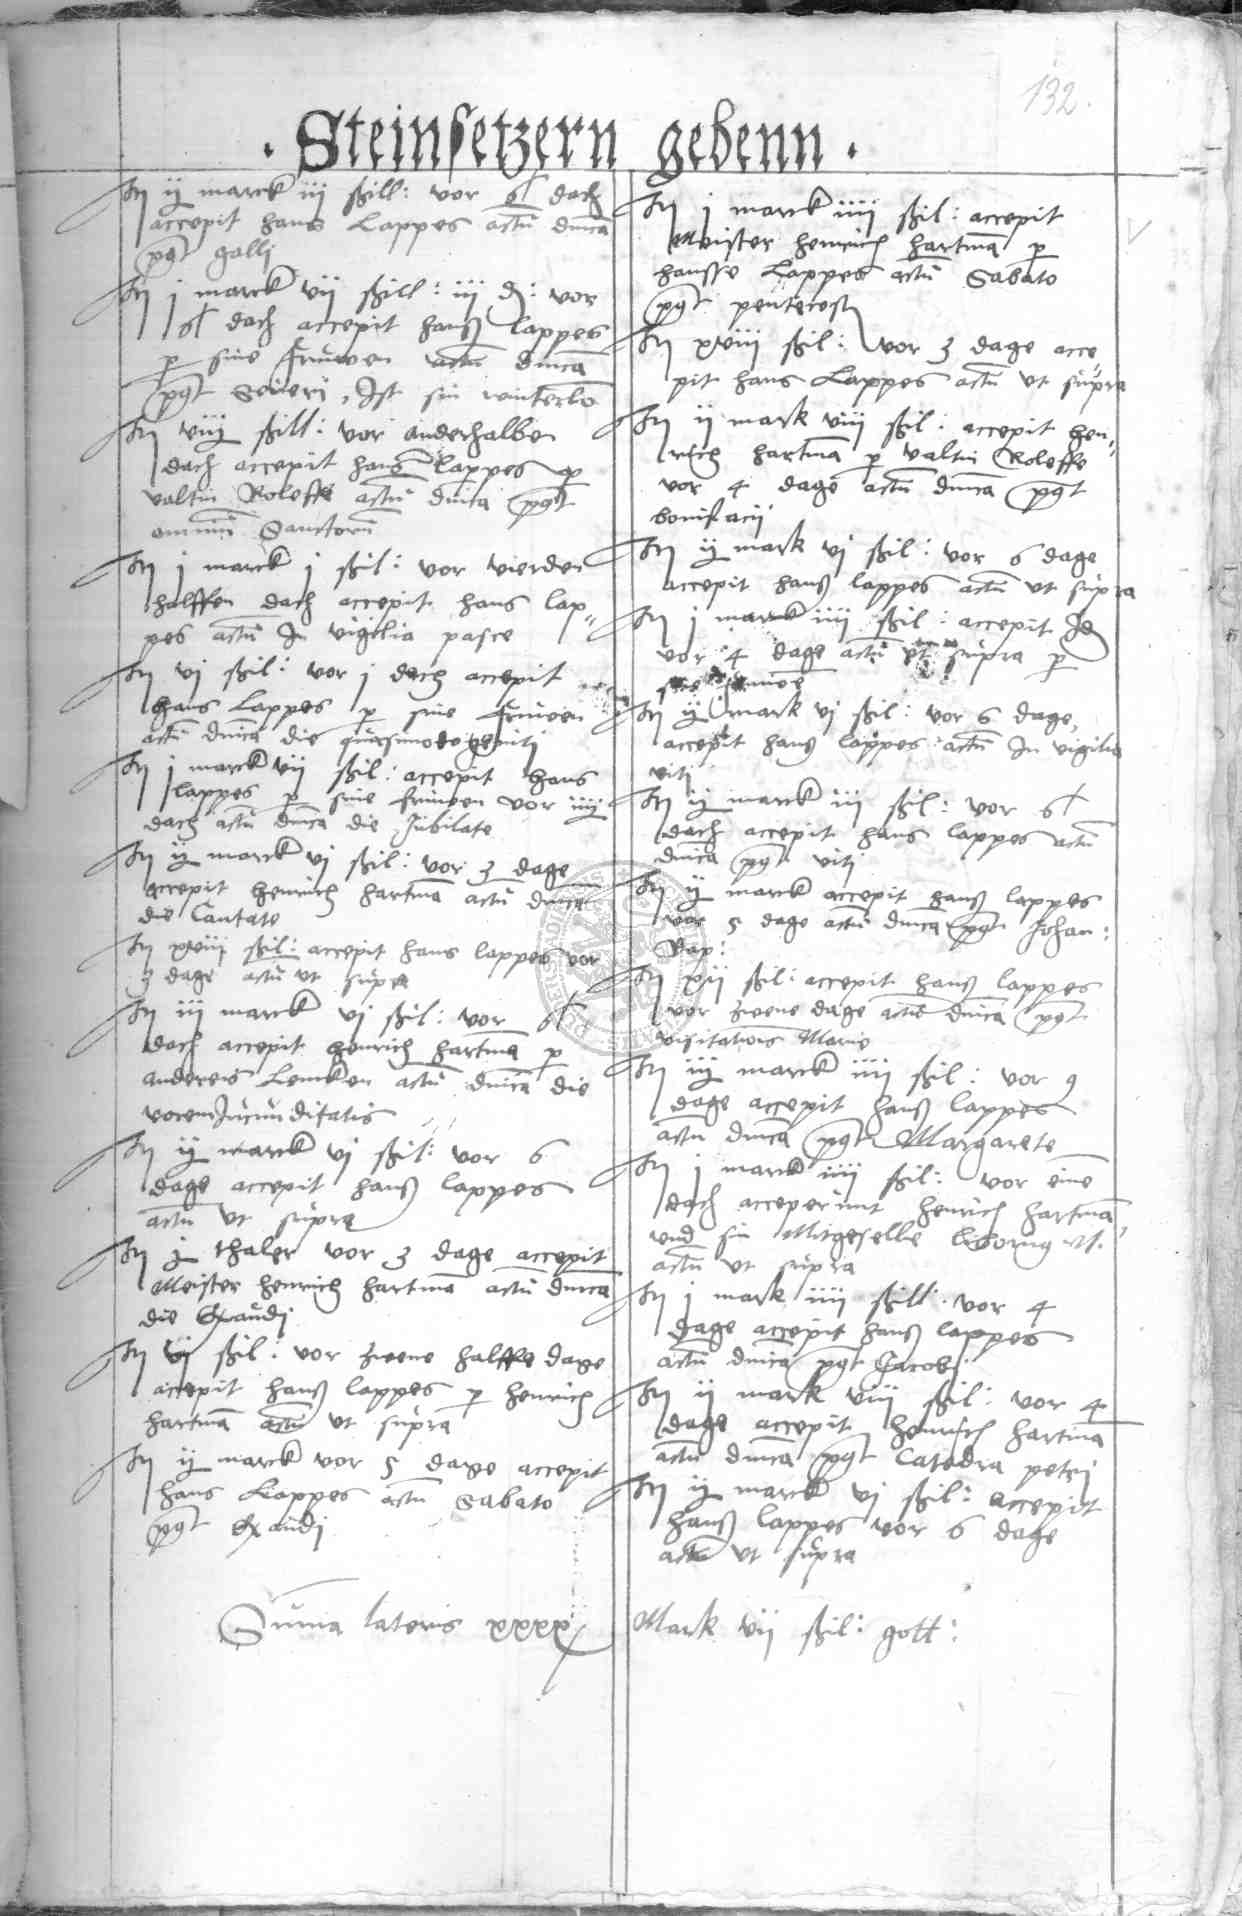 132.
. Steinsetzern gebenn .
It ij marck iij ßill: vor dach
accepit hans Lappes actū dnīca
pqt galli
It j marck vij ßill: iij d: vor
dach accepit hanß lappes
p sine fruwen actū dnīca
pqt Seueri, Ist sin winterlō
It viiij ßill: vor anderhalben
dach accepit hanß lappes p
valtin Roleffs actū dnīca pqt
omniū Sanctorū
It j marck j ßil: vor vierden
halffen dach accepit hans lap„
pes actū In vigilia pasce
It vj ßil: vor j dach accepit
Hans Lappes p sine fruwen
actū dnīca die quasimodogeniti
It j marck vij ßil: accepit Hans
lappes p sine fruwen vor iiij
dach actū dnīca die Jubilate
It ij marck vj ßil: vor 3 dage
accepit Henrich hartmā actū dnīca
die Cantate
It xviij ßil: accepit hans lappes vor
3 dage actū ut supra
It iij marck vj ßil: vor
dach accepit Henrich hartmā p
anderes Lencken actū dnīca die
vocem Jucunditatis
It ij marck vj ßil: vor 6
dage accepit hanß lappes
actū ut supra
It j thaler vor 3 dage accepit
Meister Henrich hartmā actū dnīca
die Exaudi
It vj ßil: vor zweene halffe dage
accepit hanß lappes p Henrich
hartmā actū ut supra
It ij marck vor 5 dage accepit
hans Lappes actū Sabato
pqt Exaudi
It j marck iiij ßil: accepit
Meister Henrich hartmā p
hansse Lappes actū Sabato
pqt pentecost
It xviij ßil: vor 3 dage acce
pit hans Lappes actū ut supra
It ij mark viij ßil: accepit Hen„
rich hartmā p valtin Roleffs
vor 4 dage actū dnīca pqt
bonifacij
It ij mark vj ßil: vor 6 dage
accepit hanß lappes actū ut supra
It j marck iiij ßil: accepit Id
vor 4 dage actū ut supra p
It ij mark vj ßil: vor 6 dage,
accepit hanß lappes actū In vigilia
viti
It ij marck iij ßil: vor
dach accepit hans lappes actū
dnīca pqt viti
It ij marck accepit hanß lappes
vor 5 dage actū dnīca pqt Johan:
Bap:
It xij ßil: accepit hanß lappes
vor zweene dage actū dnīca pqt
visitationis Marie
It iij marck iiij ßil: vor 9
dage accepit hanß lappes
actū dnīca pqt Margarete
It j marck iiij ßil: vor eine
dach acceperunt Henrich hartmā
vnd sin Mitgeselle
actū ut supra
It j mark iiij ßill: vor 4
dage accepit hanß lappes
actū dnīca pqt Jacobi
It ij mark viij ßil: vor 4
dage accepit Henrich hartmā
actū dnīca pqt Catedra petri
It ij marck vj ßil: accepit
hanß lappes vor 6 dage
actū ut supra
Suma lateris xxxxj Mark vij ßil: gott: